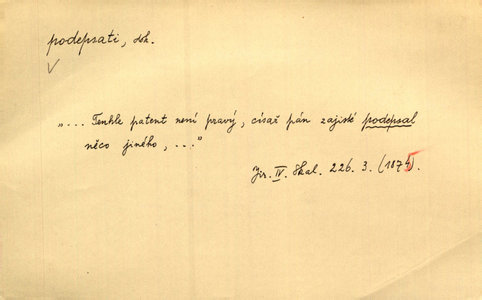 podepsati, dok.
„... Tenhle patent není pravý, císař pán zajisté podepsal
něco jiného, ..."
Jir. IV. Skal. 226. 3. (1875).